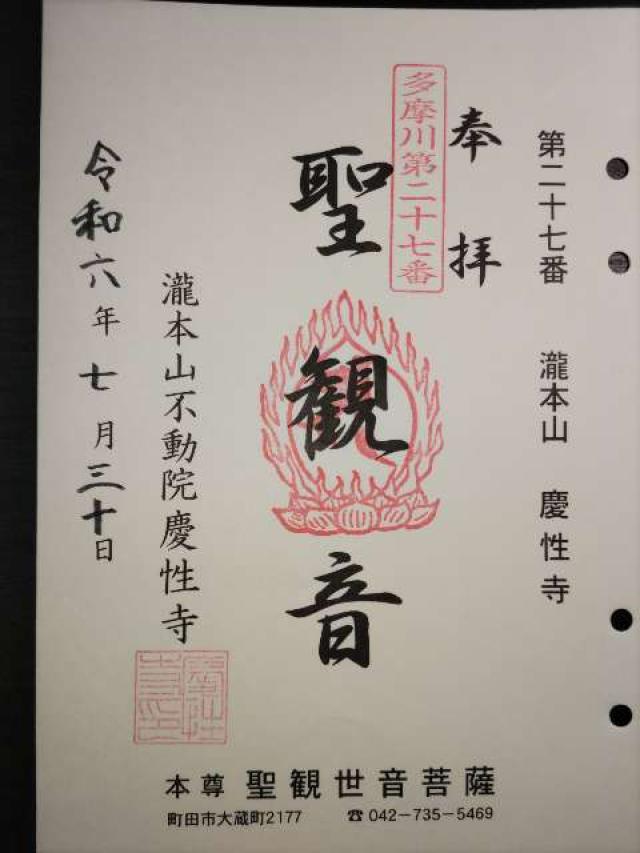 第二十七番 瀧本山 慶性寺
奉拝
多摩川第二十七番
聖観音
瀧本山不動院慶性寺
令和六年七月三十日
本尊 聖観世音菩薩
町田市大蔵町2177 ☎042-735-5469